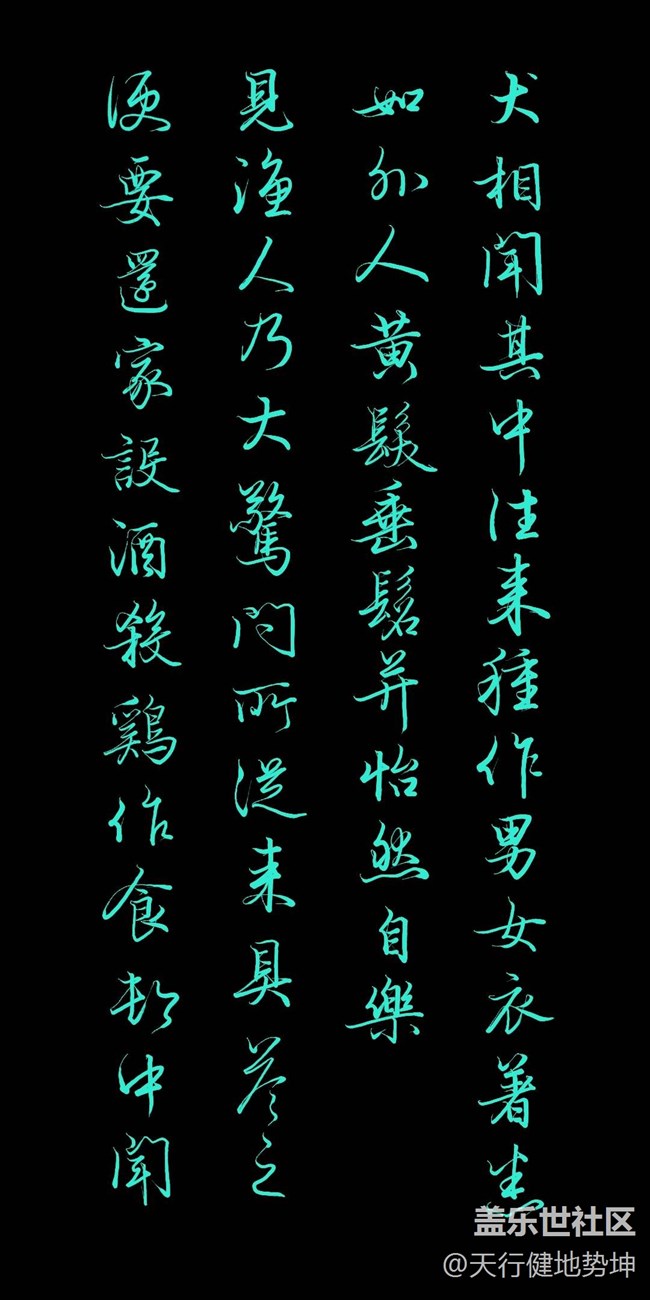 犬相聞其中往来種作男女衣著悉
如外人黄髮垂髫并怡然自樂
見漁人乃大驚問所從来具答之
便要還家設酒殺鷄作食邨中聞
盖乐世社区
@天行健地势坤